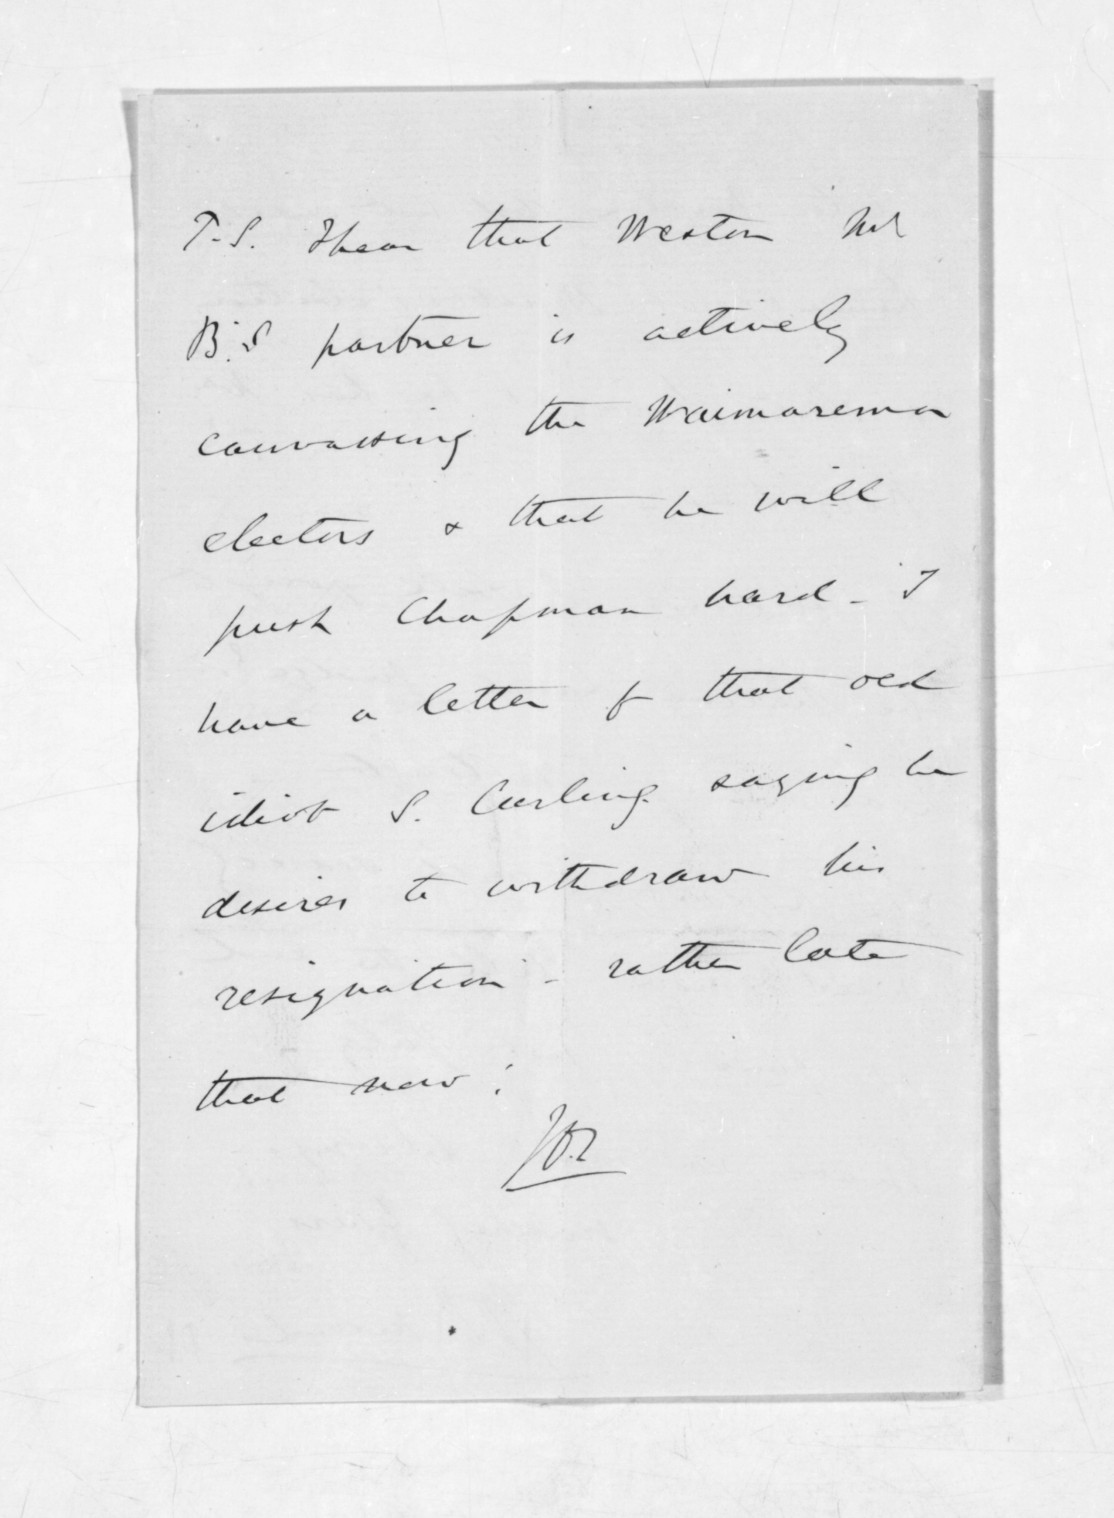 P.S. I hear that Weston
B.'s partner is actively
canvassing the Waimarama
electors & that he will
push Chapman hard - I
have a letter fr that old
idiot S. Curling saying he
desires to withdraw his
resignation - rather late
that now!